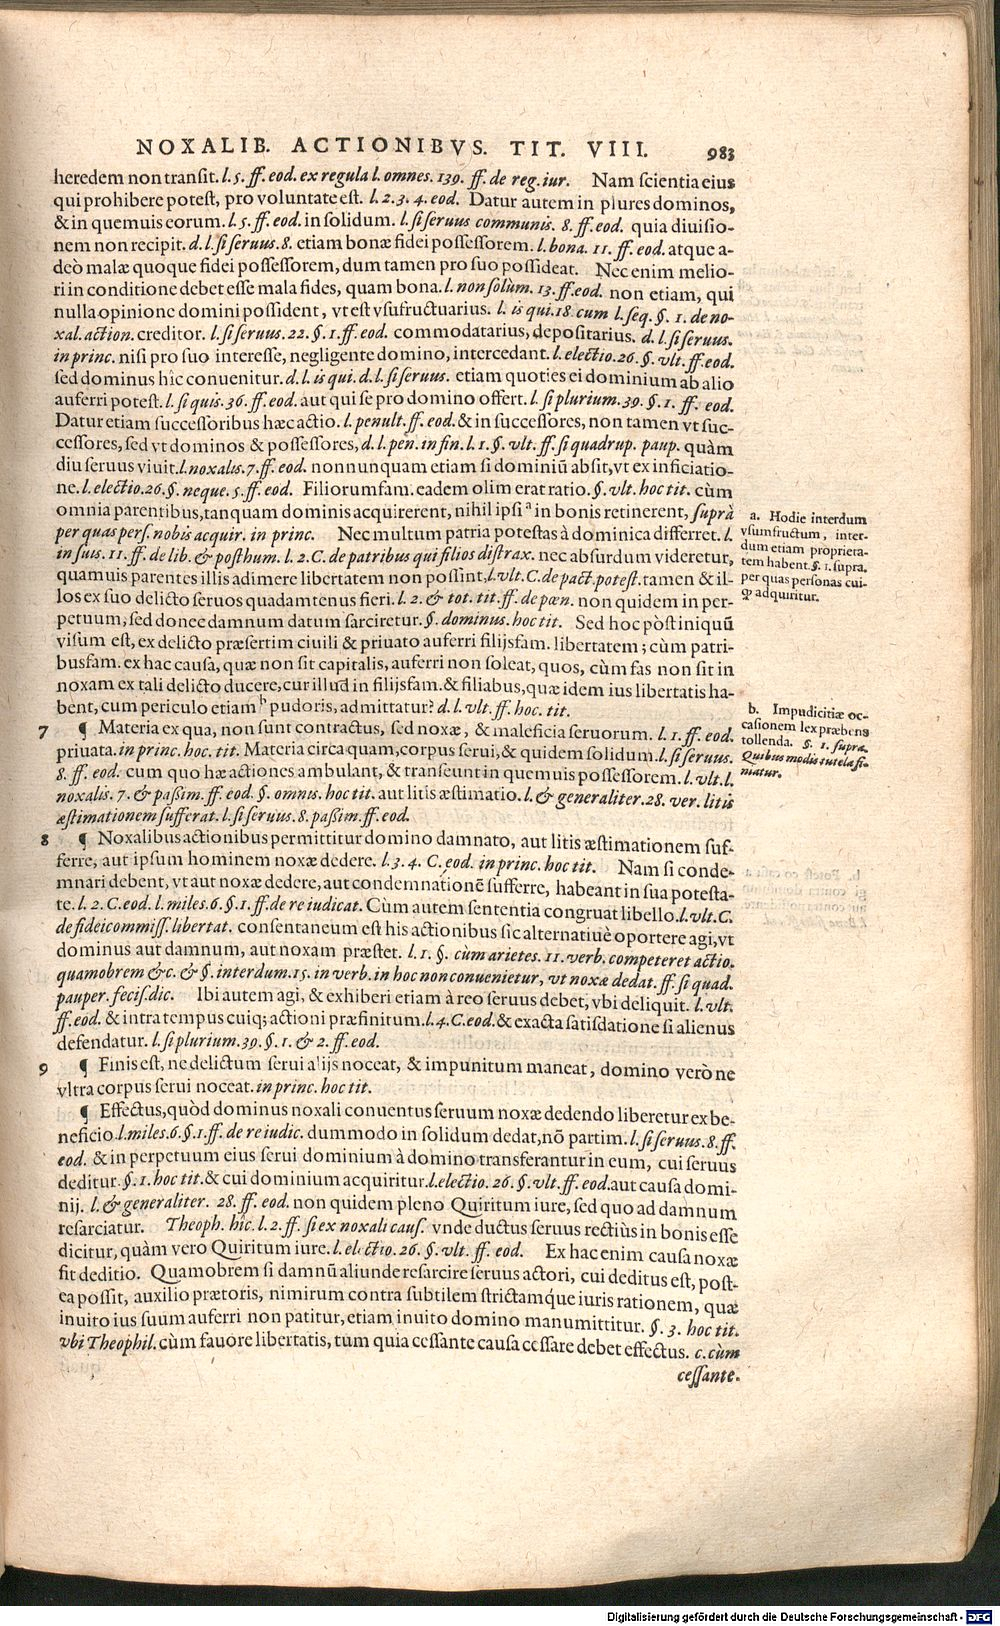 NOXALIB. ACTIONIBVS. TIT. VIII. 983
heredem non transit. l. 5. ff. eod. ex regula l. omnes. 139. ff. de reg. iur. Nam scientia eius
qui prohibere potest, pro voluntate est. l. 2. 3. 4. eod. Datur autem in plures dominos,
& in quemuis eorum. l. 5. ff. eod. in solidum. l. si seruus communis. 8. ff. eod. quia diuisio-
nem non recipit. d. l. si seruus. 8. etiam bonæ fidei possessorem. l. bona. 11. ff. eod. atque a-
deò malæ quoque fidei possessorem, dum tamen pro suo possideat. Nec enim melio-
ri in conditione debet esse mala fides, quam bona. l. non solùm. 13. ff. eod. non etiam, qui
nulla opinione domini possident, vt est vsufructuarius. l. is qui. 18. cum l. seq. §. 1. de no-
xal. action. creditor. l. si seruus. 22. §. 1. ff. eod. commodatarius, depositarius. d. l. si seruus.
in princ. nisi pro suo interesse, negligente domino, intercedant. l. electio. 26. §. vlt. ff. eod.
sed dominus hîc conuenitur. d. l. is qui. d. l. si seruus. etiam quoties ei dominium ab alio
auferri potest. l. si quis. 36. ff. eod. aut qui se pro domino offert. l. si plurium. 39. §. 1. ff. eod.
Datur etiam successoribus hæc actio. l. penult. ff. eod. & in successores, non tamen vt suc-
cessores, sed vt dominos & possessores, d. l. pen. in fin. l. 1. §. vlt. ff. si quadrup. paup. quàm
diu seruus viuit. l. noxalis. 7. ff. eod. nonnunquam etiam si dominiū absit, vt ex inficiatio-
ne. l. electio. 26. §. neque. 5. ff. eod. Filiorumfam. eadem olim erat ratio. §. vlt. hoc tit. cùm
omnia parentibus, tanquam dominis acquirerent, nihil ipsi a in bonis retinerent, suprà
per quas pers. nobis acquir. in princ. Nec multum patria potestas à dominica differret. l.
in suis. 11. ff. de lib. & posthum. l. 2. C. de patribus qui filios distrax. nec absurdum videretur,
quamuis parentes illis adimere libertatem non possint, l. vlt. C. de pact. potest. tamen & il-
los ex suo delicto seruos quadamtenus fieri. l. 2. & tot. tit. ff. de pœn. non quidem in per-
petuum, sed donec damnum datum sarciretur. §. dominus. hoc tit. Sed hoc pòst iniquū
visum est, ex delicto præsertim ciuili & priuato auferri filijsfam. libertatem; cùm patri-
busfam. ex hac causa, quæ non sit capitalis, auferri non soleat, quos, cùm fas non sit in
noxam ex tali delicto ducere, cur illud in filijsfam. & filiabus, quæ idem ius libertatis ha-
bent, cum periculo etiam b pudoris, admittatur? d. l. vlt. ff. hoc. tit.
a. Hodie interdum
vsumfructum, inter-
dum etiam proprieta-
tem habent. §. 1. supra.
per quas personas cui-
q; adquiritur.
b. Impudicitiæ oc-
casionem lex præbens
tollenda. §. 1. supra.
Quibus modis tutela fi-
niatur.
7 ¶ Materia ex qua, non sunt contractus, sed noxæ, & maleficia seruorum. l. 1. ff. eod.
priuata. in princ. hoc. tit. Materia circa quam, corpus serui, & quidem solidum. l. si seruus.
8. ff. eod. cum quo hæ actiones ambulant, & transeunt in quemuis possessorem. l. vlt. l.
noxalis. 7. & passim. ff. eod. §. omnis. hoc tit. aut litis æstimatio. l. & generaliter. 28. ver. litis
æstimationem sufferat. l. si seruus. 8. passim. ff. eod.
8 ¶ Noxalibus actionibus permittitur domino damnato, aut litis æstimationem suf-
ferre, aut ipsum hominem noxæ dedere. l. 3. 4. C. eod. in princ. hoc tit. Nam si conde-
mnari debent, vt aut noxæ dedere, aut condemnationē sufferre, habeant in sua potesta-
te. l. 2. C. eod. l. miles. 6. §. 1. ff. de re iudicat. Cùm autem sententia congruat libello. l. vlt. C.
de fideicommiss. libertat. consentaneum est his actionibus sic alternatiuè oportere agi, vt
dominus aut damnum, aut noxam præstet. l. 1. §. cùm arietes. 11. verb. competeret actio.
quamobrem &c. & §. interdum. 15. in verb. in hoc non conuenietur, vt noxæ dedat. ff. si quad.
pauper. fecis. dic. Ibi autem agi, & exhiberi etiam à reo seruus debet, vbi deliquit. l. vlt.
ff. eod. & intra tempus cuiq; actioni præfinitum. l. 4. C. eod. & exacta satisdatione si alienus
defendatur. l. si plurium. 39. §. 1. & 2. ff. eod.
9 ¶ Finis est, ne delictum serui alijs noceat, & impunitum maneat, domino verò ne
vltra corpus serui noceat. in princ. hoc tit.
¶ Effectus, quòd dominus noxali conuentus seruum noxæ dedendo liberetur ex be-
neficio l. miles. 6. §. 1. ff. de re iudic. dummodo in solidum dedat, nō partim. l. si seruus. 8. ff.
eod. & in perpetuum eius serui dominium à domino transferantur in eum, cui seruus
deditur. §. 1. hoc tit. & cui dominium acquiritur. l. electio. 26. §. vlt. ff. eod. aut causa domi-
nij. l. & generaliter. 28. ff. eod. non quidem pleno Quiritum iure, sed quo ad damnum
resarciatur. Theoph. hîc. l. 2. ff. si ex noxali caus. vnde ductus seruus rectiùs in bonis esse
dicitur, quàm vero Quiritum iure. l. electio. 26. §. vlt. ff. eod. Ex hac enim causa noxæ
fit deditio. Quamobrem si damnū aliunde resarcire seruus actori, cui deditus est, post-
ea possit, auxilio prætoris, nimirum contra subtilem strictamq́ue iuris rationem, quæ
inuito ius suum auferri non patitur, etiam inuito domino manumittitur. §. 3. hoc tit.
vbi Theophil. cùm fauore libertatis, tum quia cessante causa cessare debet effectus. c. cùm
cessante.
Digitalisierung gefördert durch die Deutsche Forschungsgemeinschaft - DFG